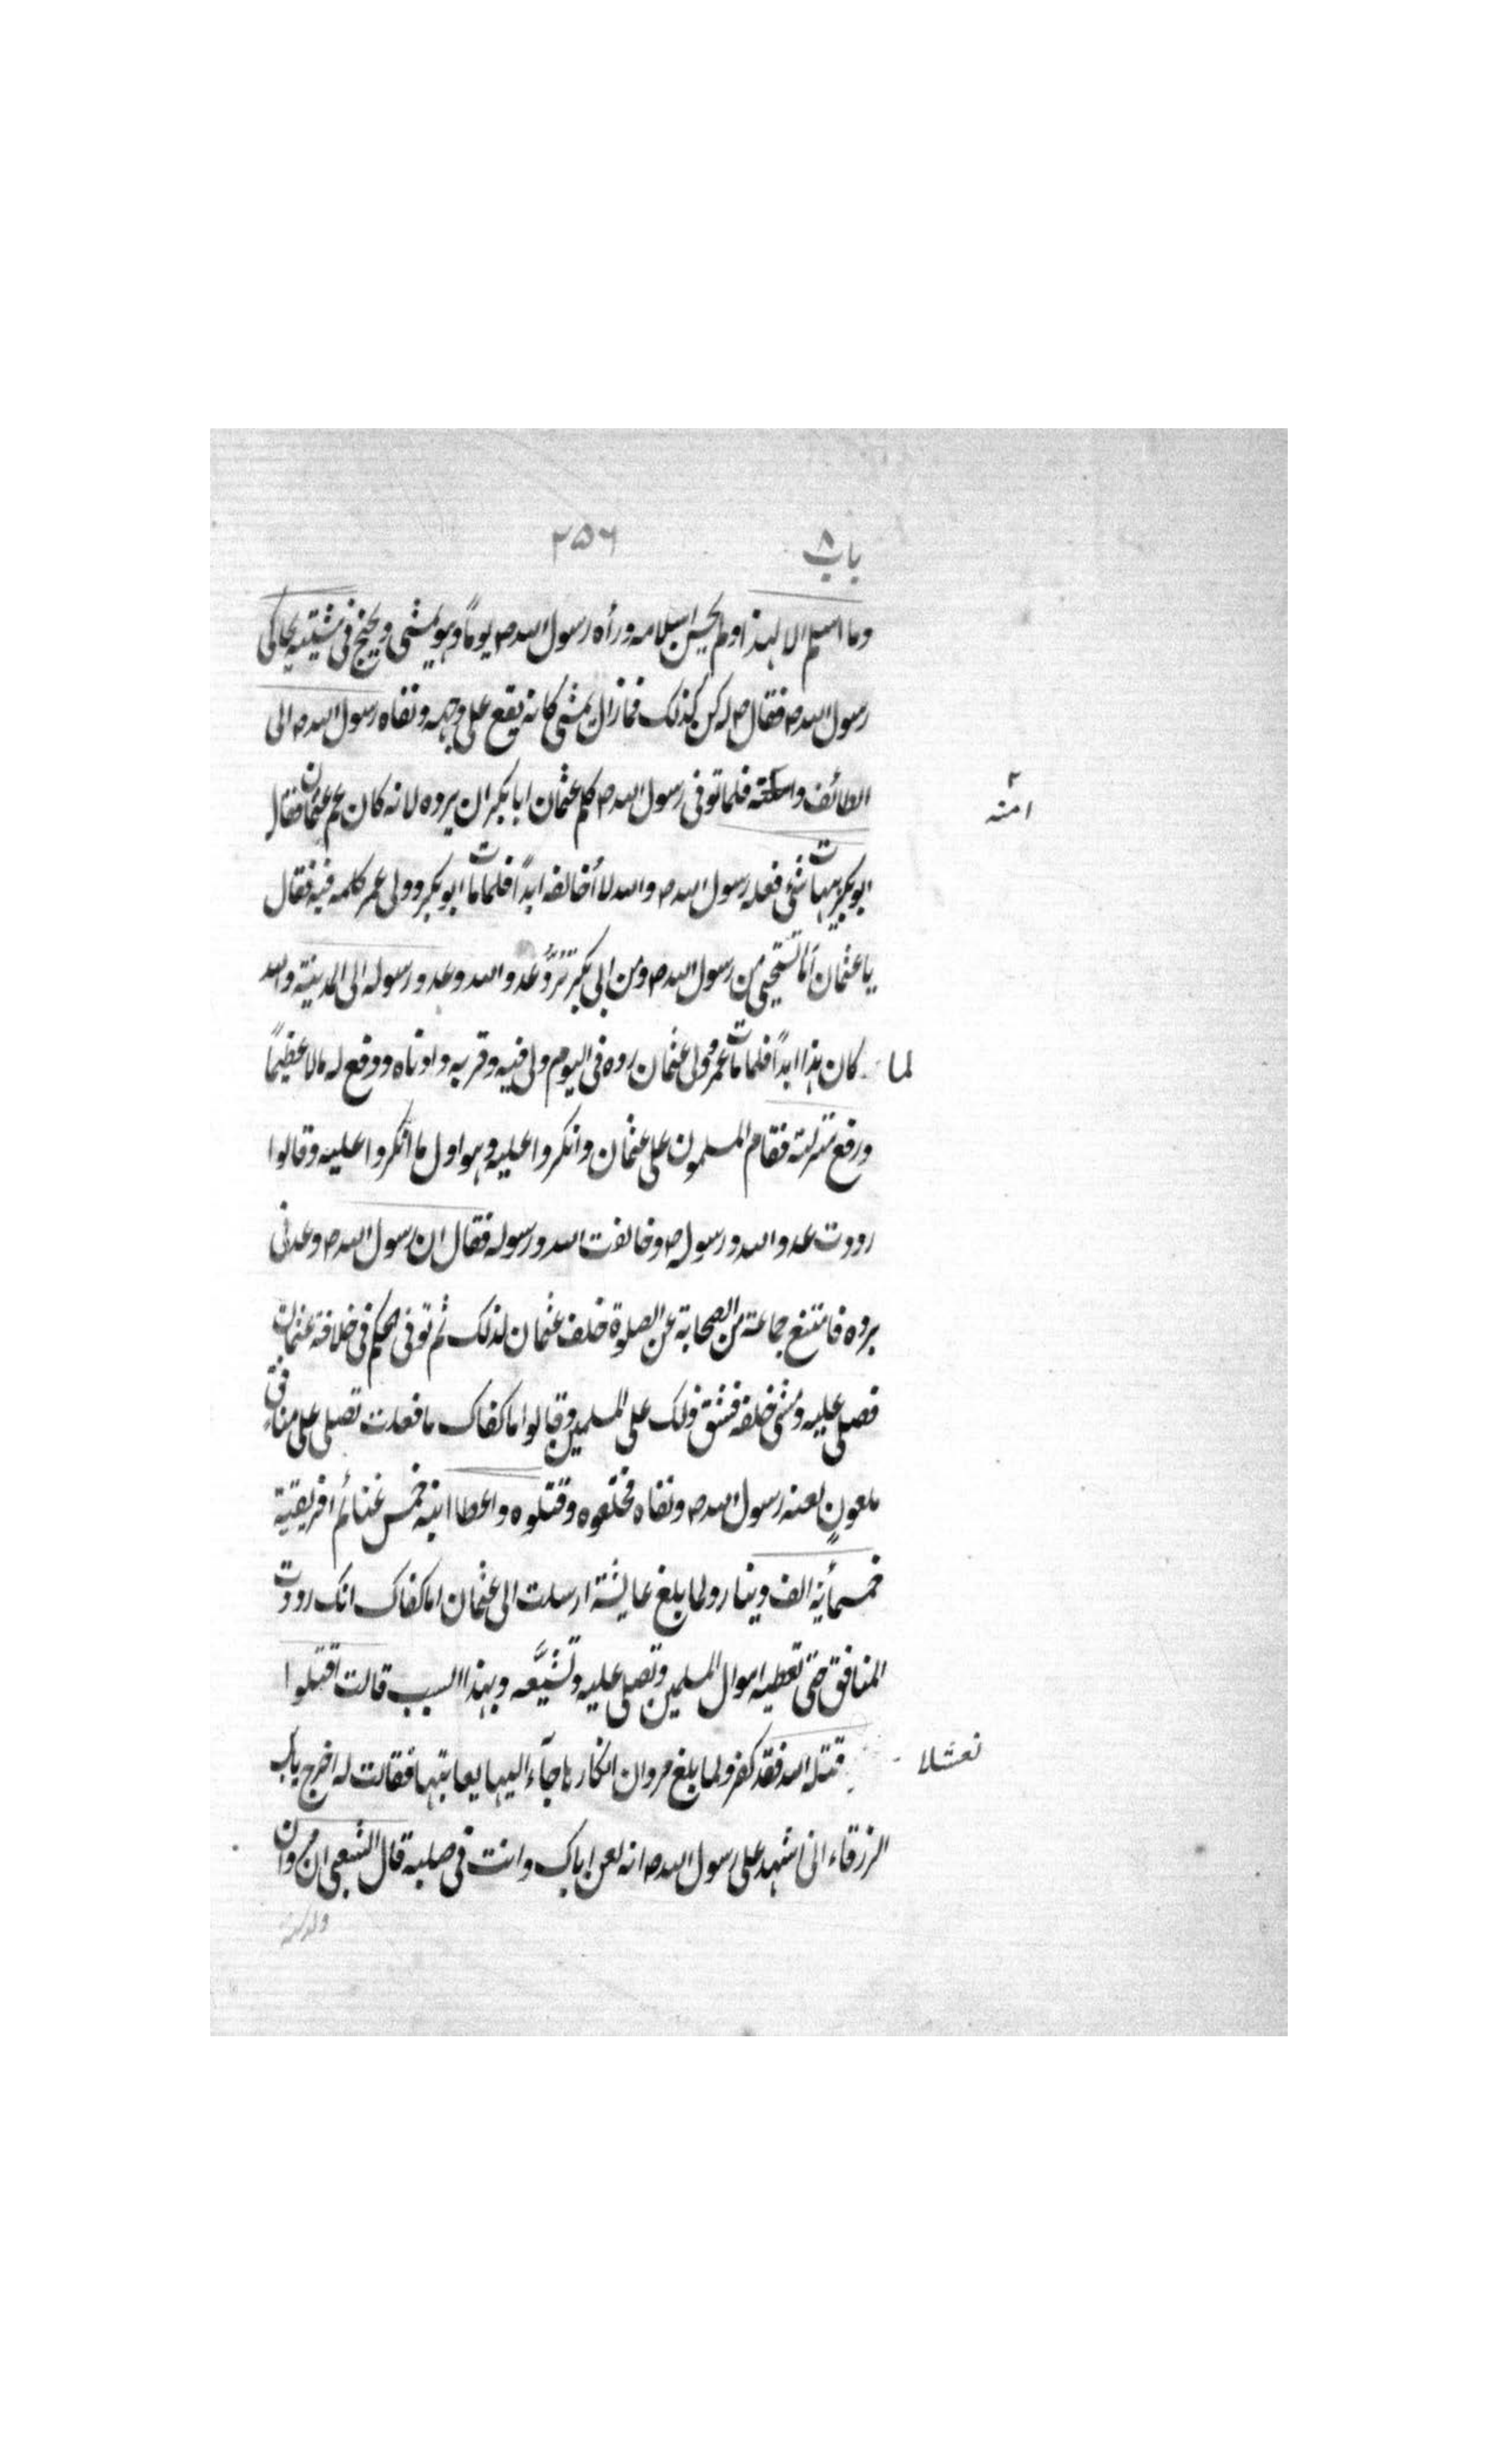 باب ٨ ٢٥٦
وما اسلم الا لهذا ولم يحسن اسلامه ورأه رسول الله ص يوماً وهو يمشى ويخلج فى مشيته يحاكى
رسول الله ص فقال ص له كن كذلك فما زال يمشى كانه يقع على وجهه ونفاه رسول الله ص الى
الطائف و فلما توفى رسول الله ص كلم عثمان ابا بكر ان يرده لانه كان عم عثمان فقال
امنه
ابو بكر هيهات شئ فعله رسول الله ص والله لا أخالفه ابداً فلما مات ابو بكر وولى عمر كلمه فيه فقال
يا عثمان أما تستحيى من رسول الله ص ومن ابى بكر تردّ عدو الله وعدو رسوله الى المدينة والله
لما كان هذا ابداً فلما مات عمر وولى عثمان رده فى اليوم ولى فيه وقربه وادناه ودفع له مالا عظيماً
ورفع منزلته فقام المسلمون على عثمان وانكروا عليه وهو اول ما انكروا عليه وقالوا
رددت عدو الله ورسوله ص وخالفت الله ورسوله فقال ان رسول الله ص وعدنى
برده فامتنع جماعة من الصحابة عن الصلوة خلف عثمان لذلك ثم توفى الحكم فى خلافة عثمان
فصلى عليه ومشى خلفه فشق ذلك على المسلمين وقالوا ما كفاك ما فعلت تصلى على منافق
ملعونٍ لعنه رسول الله ص ونفاه فخلعوه وقتلوه واعطا ابنه خمس غنائم افريقية
خمسمأية الف دينار ولما بلغ عايشة ارسلت الى عثمان اما كفاك انك رددت
المنافق حتى تعطيه اموال المسلمين وتصلى عليه وتشيّعه وبهذا السبب قالت اقتلوا
نعثلا قتله الله فقد كفر ولما بلغ مروان انكارها جآء اليها يعاتبها فقالت له اخرج يابن
الزرقاء انى اشهد على رسول الله ص انه لعن اباك وانت فى صلبه قال الشعبى ان مروان